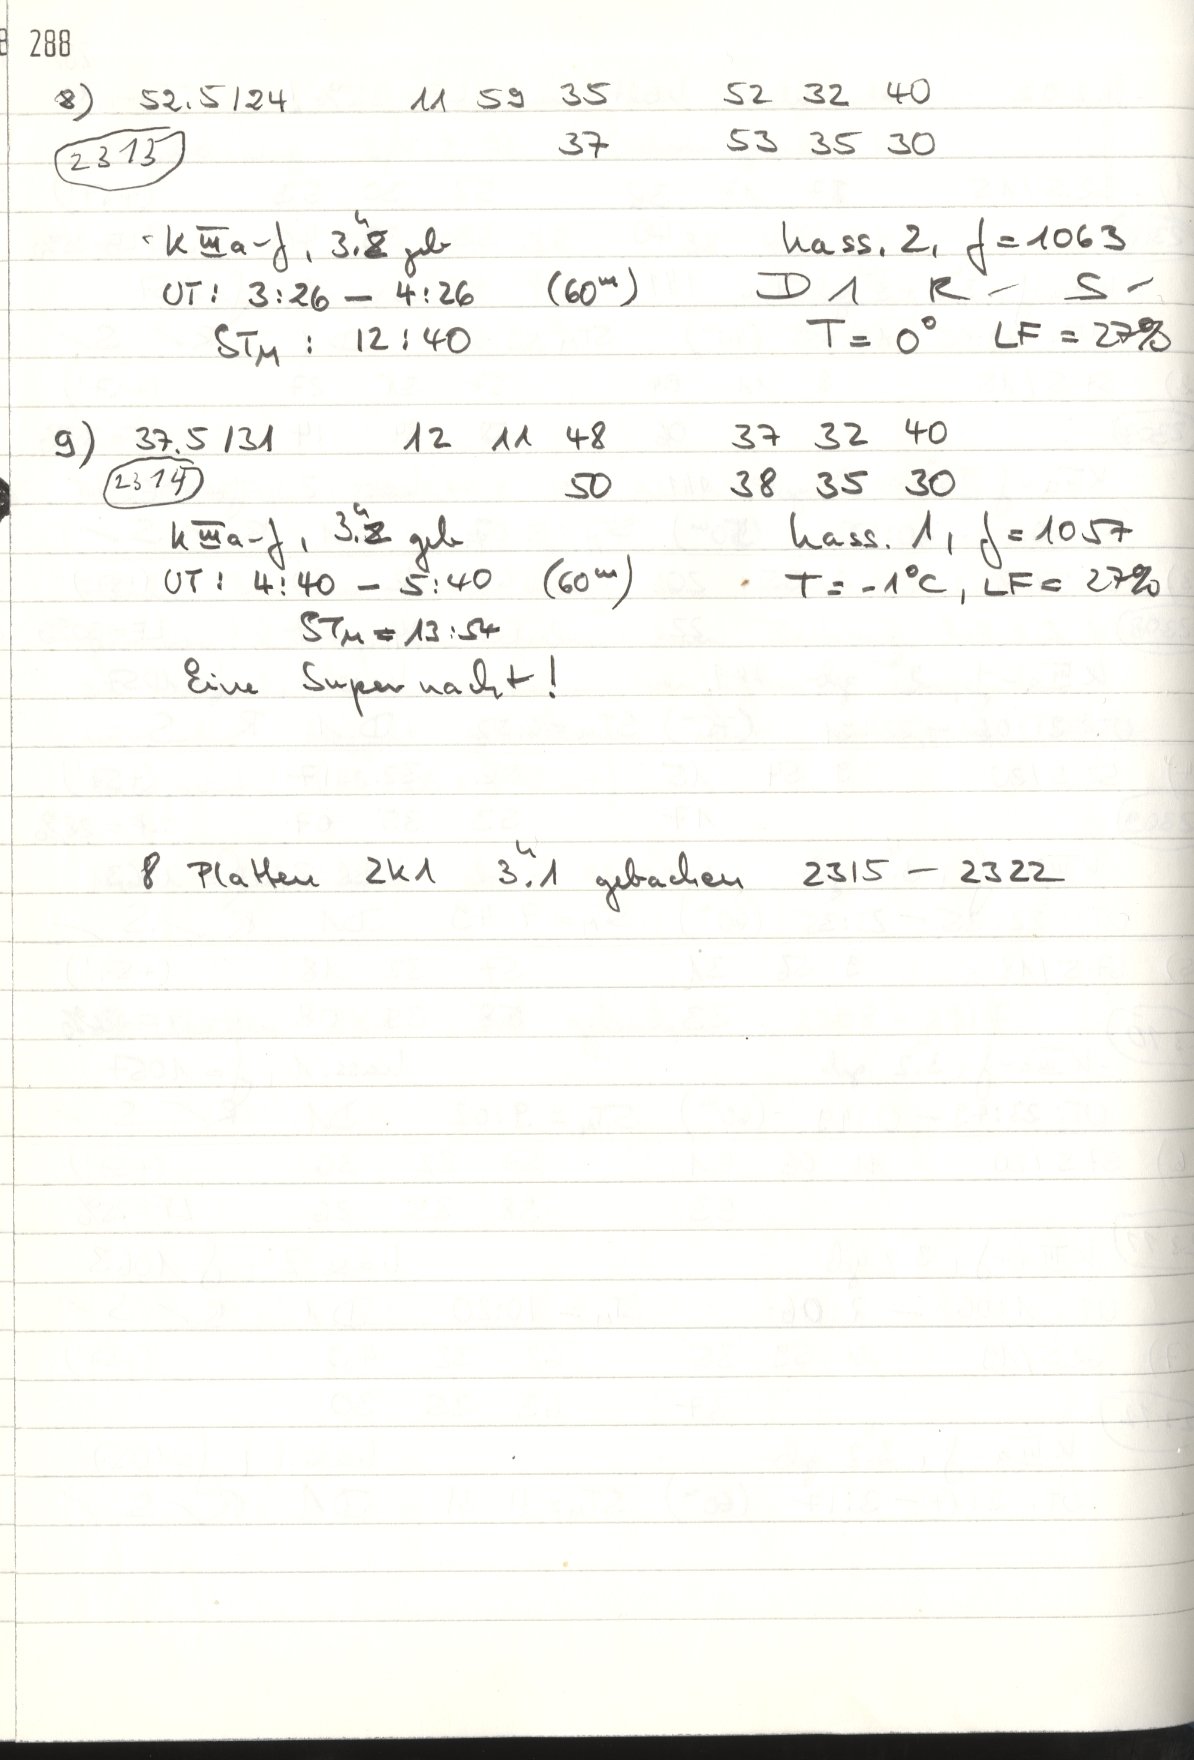 288
8) 52.5/24 11 59 35 52 32 40
2313 37 53 35 30
k IIIa-J, 3.2ʰ geb Kass. 2, f=1063
UT: 3:26 – 4:26 (60ᵐ) D1 R – S –
STM : 12:40 T = 0° LF = 27%
9) 37.5/31 12 11 48 37 32 40
2314 50 38 35 30
k IIIa-J, 3.2ʰ geb Kass. 1, f=1057
UT: 4:40 – 5:40 (60ᵐ) T = -1°C, LF = 27%
STM = 13:54
Eine Supernacht!
8 Platten ZK1 3.ʰ1 gebacken 2315 – 2322